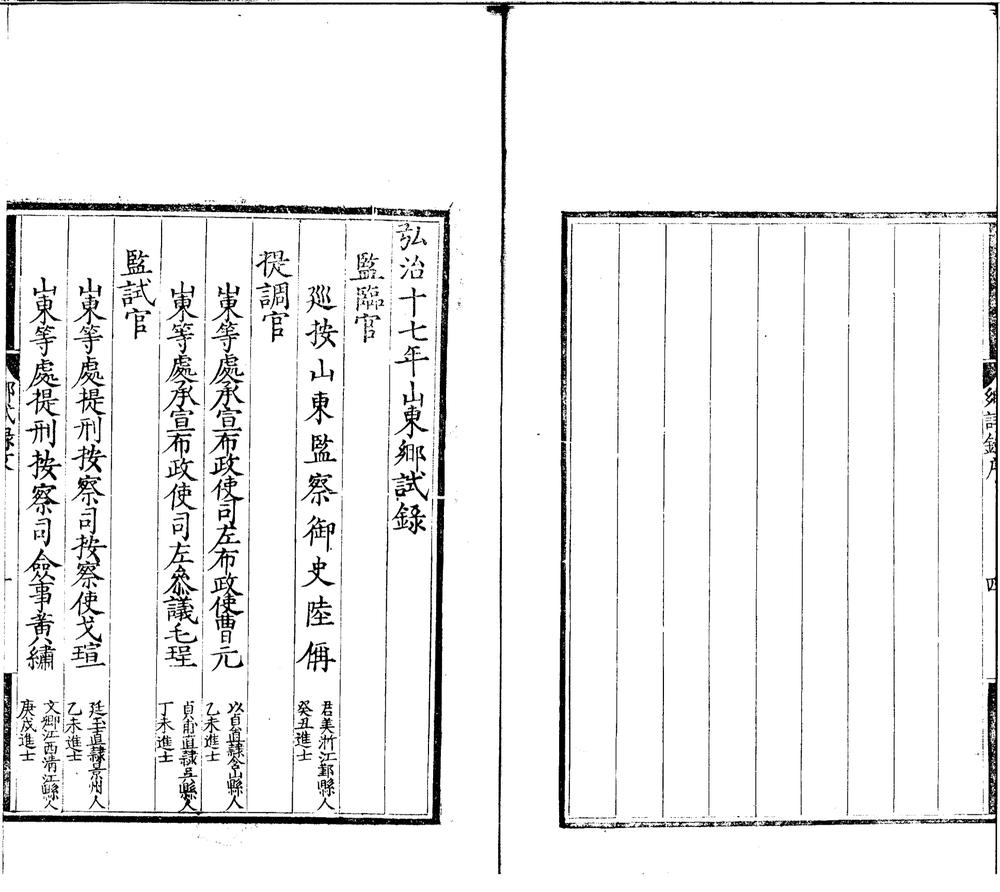 鄉試録序
四
弘治十七年山東鄉試録
監臨官
廵按山東監察御史陸偁
君美浙江鄞縣人
癸丑進士
提調官
山東等處承宣布政使司左布政使曹元
以貞直隷含山縣人
乙未進士
山東等處承宣布政使司左叅議毛珵
貞甫直隷吳縣人
丁未進士
監試官
山東等處提刑按察司按察使戈瑄
廷玉直隷景州人
乙未進士
山東等處提刑按察司僉事黄繡
文卿江西清江縣人
庚戌進士